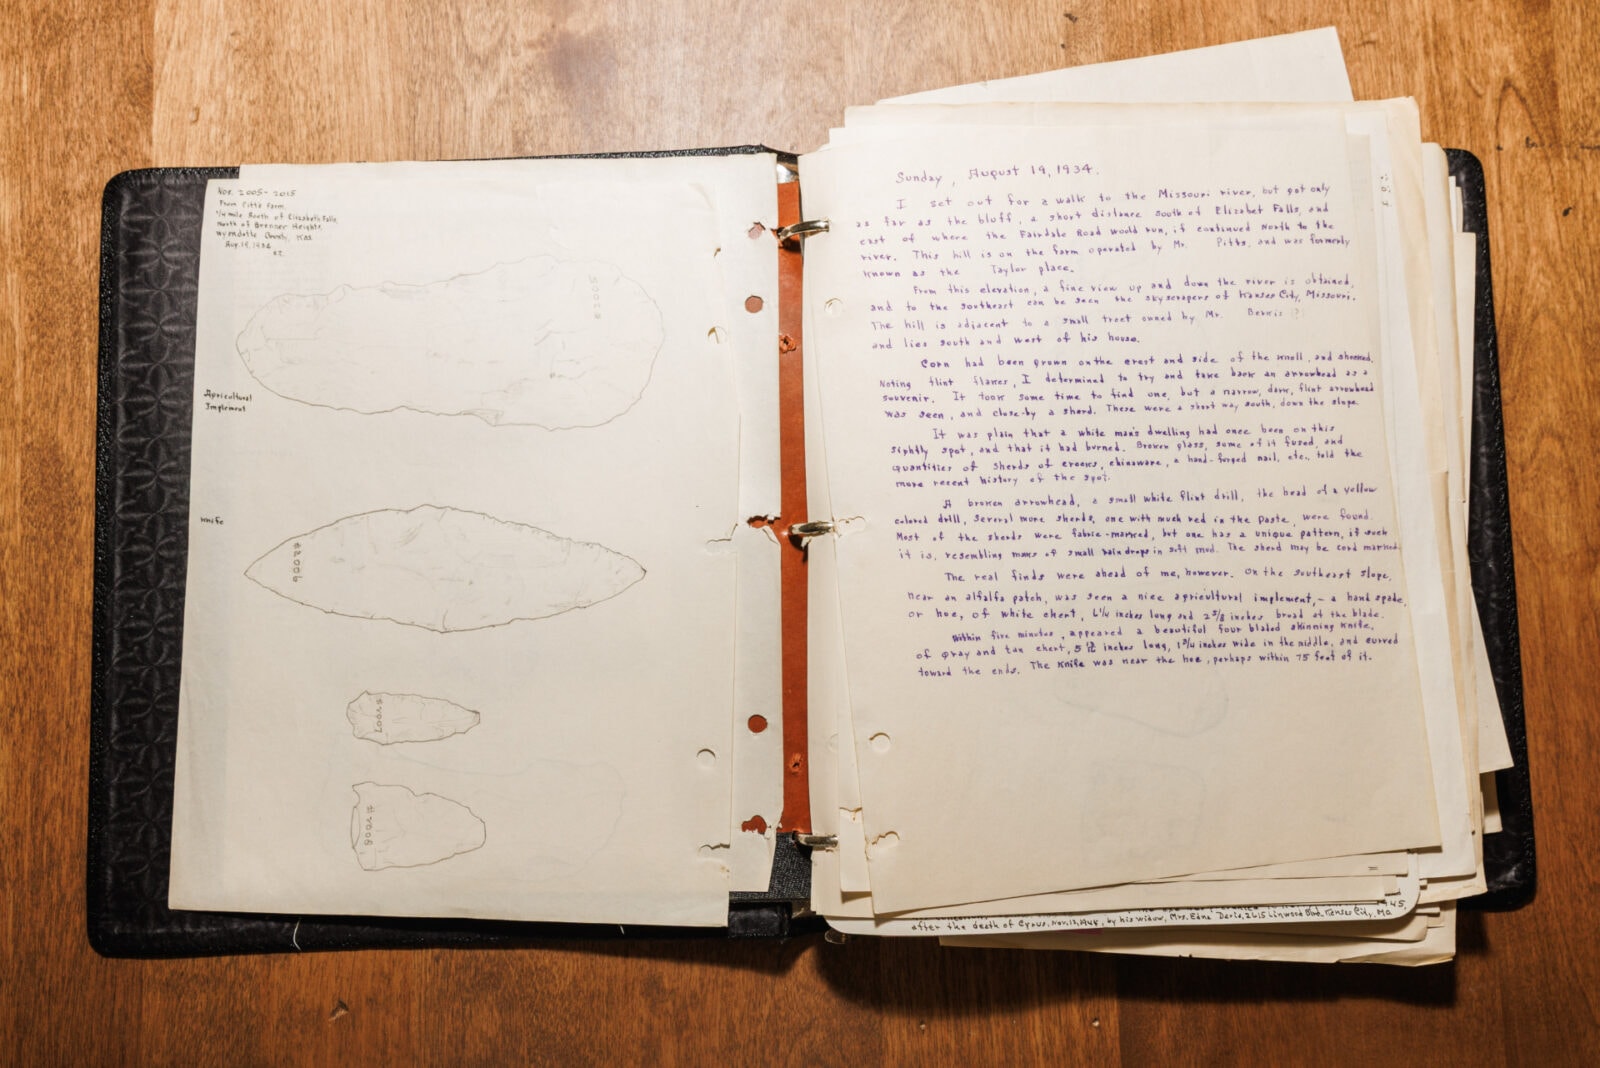 Nos. 2005-2015
From Pitt's farm
1/4 mile South of Elizabeth Falls,
North of Brenner Heights,
Wyandotte County, Kas.
Aug. 19, 1934
Agricultural
Implement
Knife
Sunday, August 19, 1934.
I set out for a walk to the Missouri river, but got only
as far as the bluff, a short distance south of Elizabet Falls, and
east of where the Fairdale Road would run, if continued North to the
river. This hill is on the farm operated by Mr. Pitts, and was formerly
known as the Taylor place.
From this elevation, a fine view up and down the river is obtained,
and to the southeast can be seen the skyscrapers of Kansas City, Missouri.
The hill is adjacent to a small tract owned by Mr.
and lies south and west of his house.
Corn had been grown on the crest and side of the knoll, and shocked.
Noting flint flakes, I determined to try and take back an arrowhead as a
souvenir. It took some time to find one, but a narrow, dark, flint arrowhead
was seen, and close-by a sherd. These were a short way south, down the slope.
It was plain that a white man's dwelling had once been on this
sightly spot, and that it had burned. Broken glass, some of it fused, and
quantities of sherds of crocks, chinaware, a hand-forged nail, etc., told the
more recent history of the spot.
A broken arrowhead, a small white flint drill, the head of a yellow
colored drill, several more sherds, one with much red in the paste, were found.
Most of the sherds were fabric-marked, but one has a unique pattern, if such
it is, resembling marks of small rain drops in soft mud. The sherd may be cord marked.
The real finds were ahead of me, however. On the southeast slope,
near an alfalfa patch, was seen a nice agricultural implement, - a hand spade,
or hoe, of white chert, 6 1/4 inches long and 2 5/8 inches broad at the blade.
Within five minutes, appeared a beautiful four bladed skinning knife,
of gray and tan chert, 5 inches long, 1 3/4 inches wide in the middle, and curved
toward the ends. The knife was near the hoe, perhaps within 75 feet of it.
1945,
after the death of Cyrus, Nov. 13, 1944, by his widow, Mrs. Edna Davis, 2615 Linwood Blvd. Kansas City, Mo